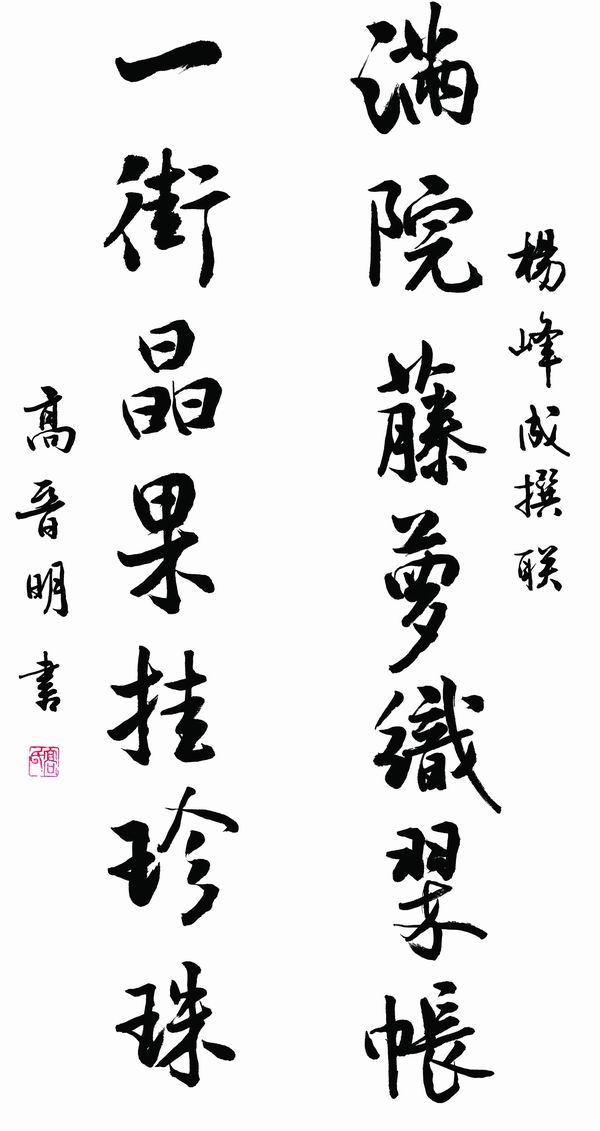 楊峰成撰联
满院藤萝織翠帳
一街晶果挂珍珠
高晋明書